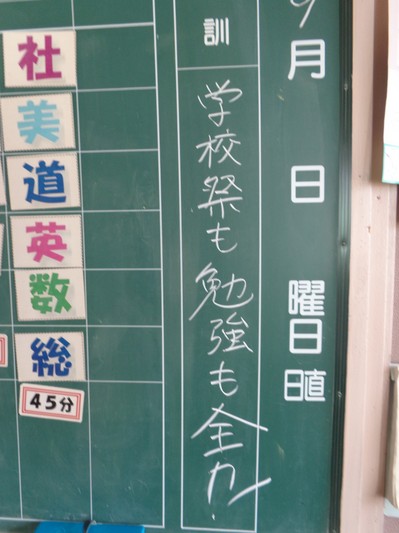 9月 日 曜日 日直
訓
学校祭も勉強も全力!
社
美
道
英
数
総
45分